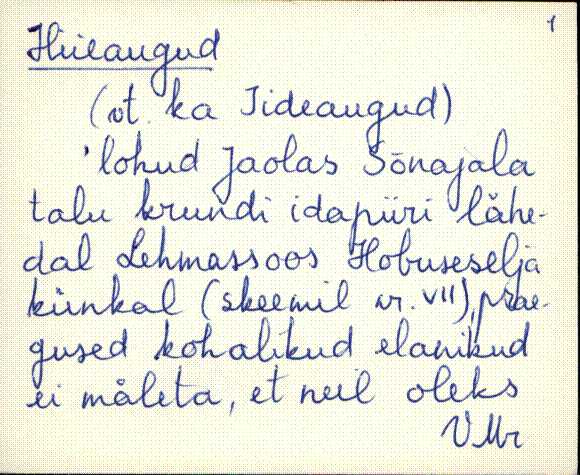 1
Hiieaugud
(vt. ka Iideaugud)
'lohud Jaolas Sõnajala
talu krundi idapiiri lähe-
dal Lehmassoos Hobuseselja
künkal (skeemil nr. VII), prae-
gused kohalikud elanikud
ei mäleta, et neil oleks
VMr